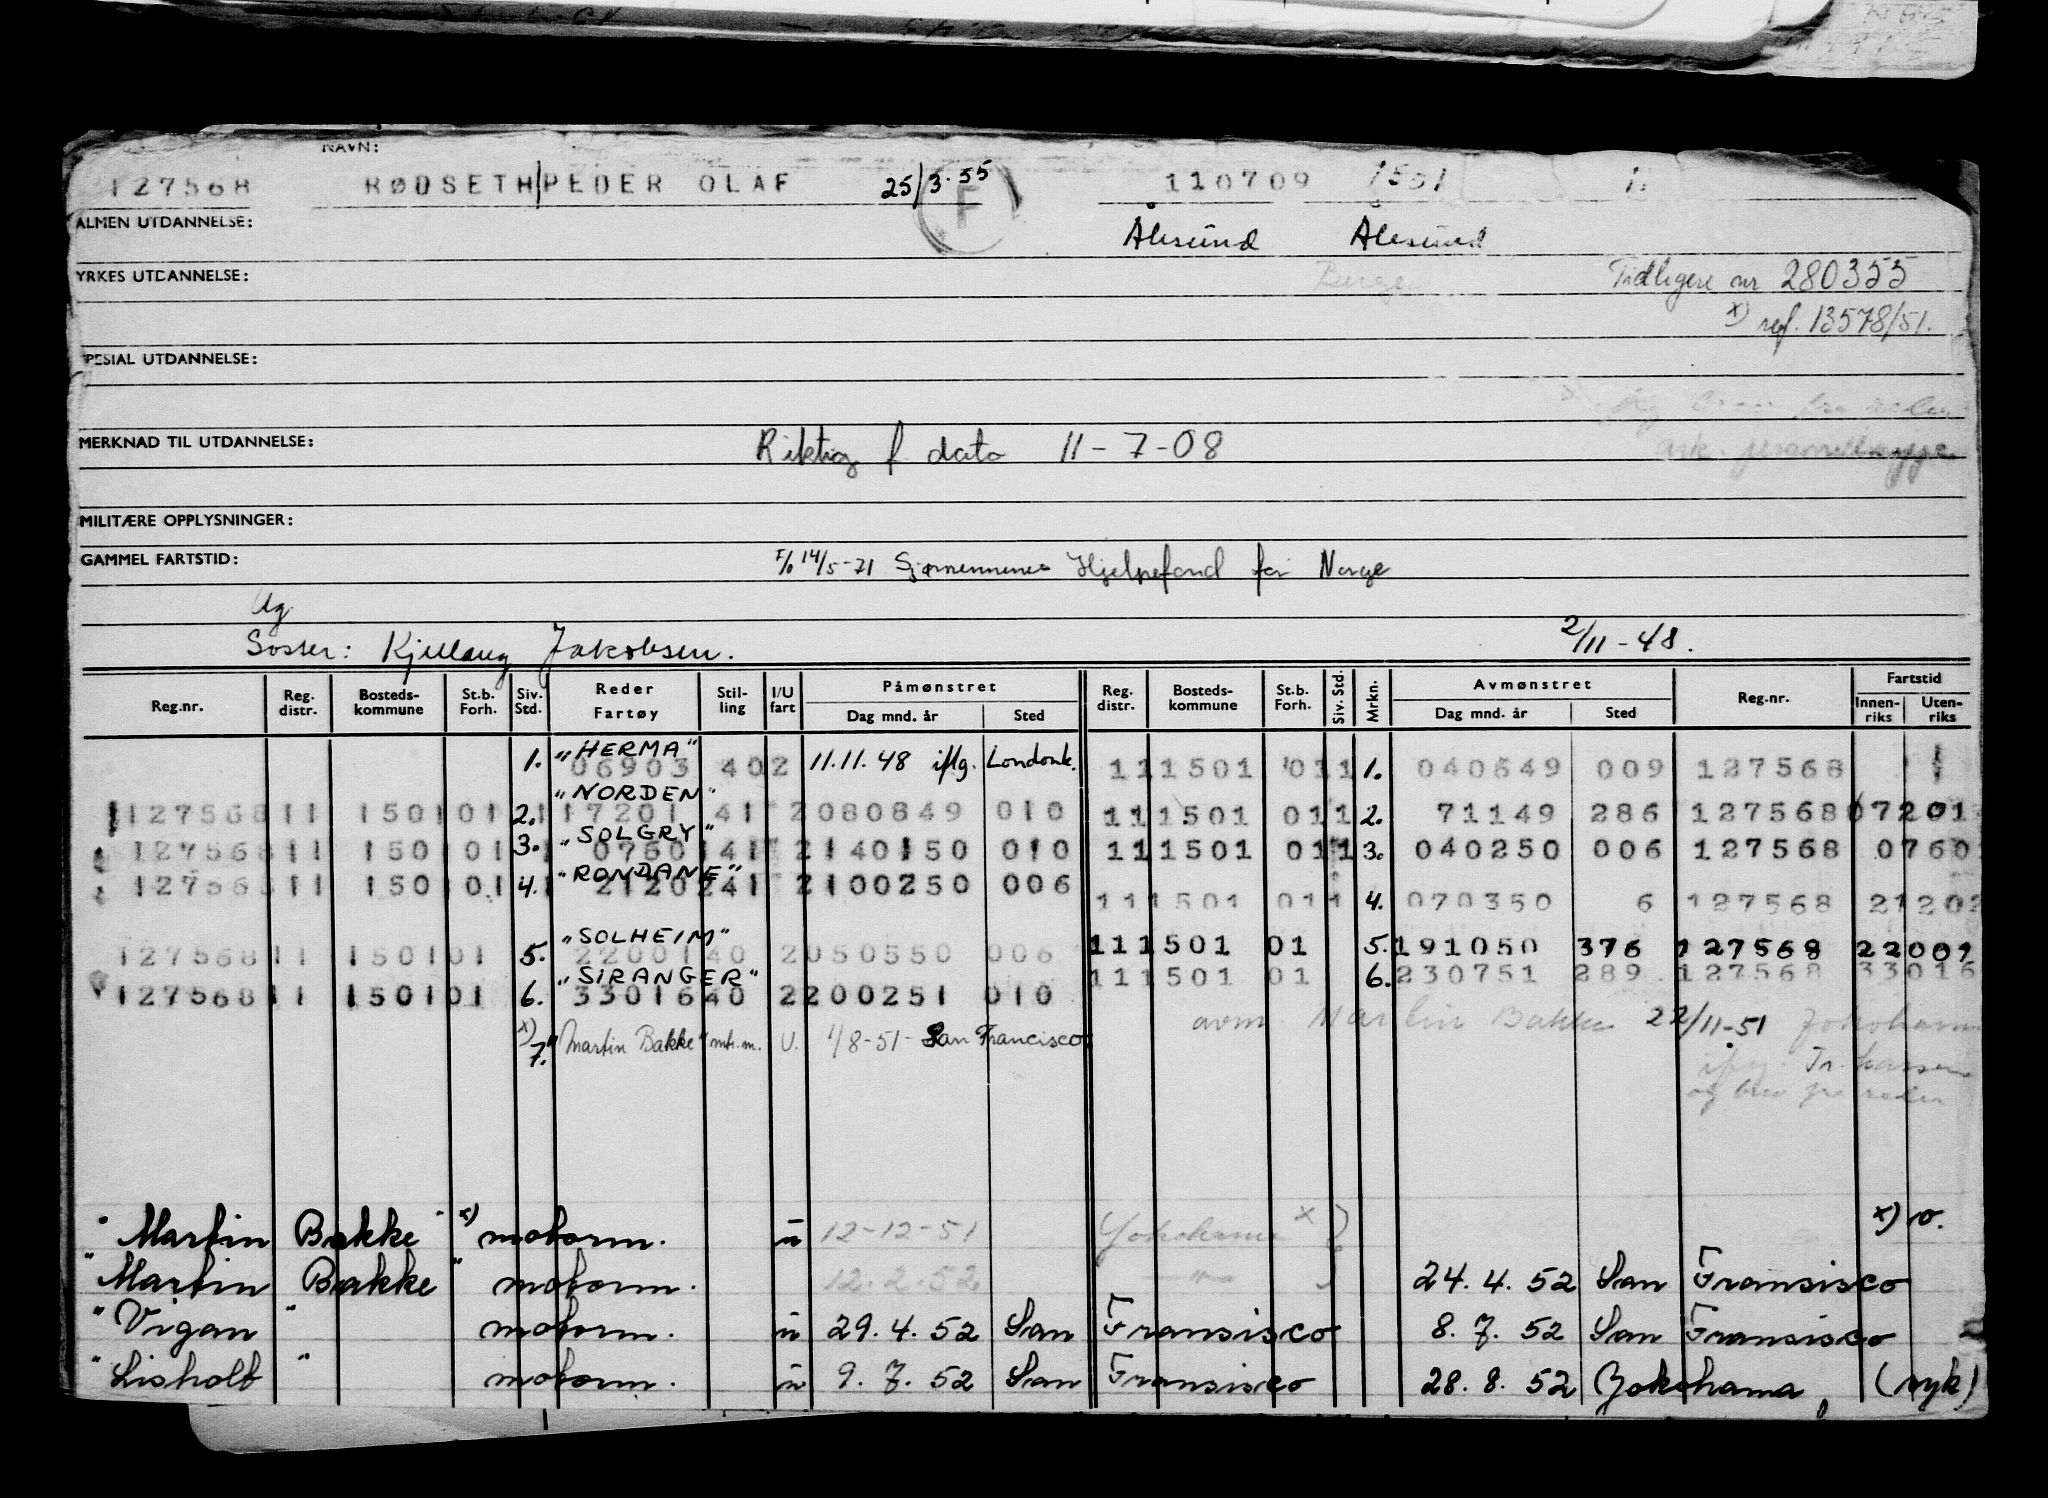 NAVN:
127568 RØDSETH/PEDER OLAF 25/3-55 F 110709 1501
ALMEN UTDANNELSE: Ålesund Ålesund
YRKES UTDANNELSE: Tidligere nr 280355
x) ref. 13578/51.
SPESIAL UTDANNELSE:
MERKNAD TIL UTDANNELSE: Riktig f data 11-7-08
MILITÆRE OPPLYSNINGER:
GAMMEL FARTSTID: F/o 14/5-71 Sjømennenes Hjelpefond for Norge
Ug
Søster: Kjellaug Jakobsen. 2/11-48.
Reg.nr. Reg. distr. Bosteds-kommune St.b. Forh. Siv. Std. Reder Fartøy Stil-ling I/U fart Påmønstret Dag mnd. år Sted Reg. distr. Bosteds-kommune St.b. Forh. Siv. Std. Mrkn. Avmønstret Dag mnd. år Sted Reg.nr. Fartstid Innen-riks Uten-riks
1. "HERMA" 06903 402 11.11.48 iflg. Londonk. 111501 011 1. 040649 009 127568
"NORDEN"
127568 11 1501 01 2. 17201 41 2080849 010 111501 011 2. 71149 286 127568 07201
"SOLGRY"
127568 11 1501 01 3. 0760141 2140150 010 111501 011 3. 040250 006 127568 0760
"RONDANE"
127568 11 1501 01 4. 2120241 2100250 006 111501 011 4. 070350 6 127568 21202
"SOLHEIM"
127568 11 1501 01 5. 2200140 2050550 006 111501 01 5. 191050 376 127568 22001
"SIRANGER"
127568 11 1501 01 6. 3301640 2200251 010 111501 01 6. 230751 289 127568 33016
x) 7. "Martin Bakke" mtr.m. U. 1/8-51- San Francisco avm. Martin Bakke 22/11-51 Yokohama
iflg. Tr. Larsen
og brev fra reder
"Martin Bakke" x) motorm. u 12-12-51 Yokohama x) x) o.
"Martin Bakke" motorm. 12.2.52 —"— 24.4.52 San Fransisco
"Vigan" motorm. u 29.4.52 San Fransisco 8.7.52 San Fransisco
"Lisholt" motorm. u 9.7.52 San Fransisco 28.8.52 Yokohama (syk)